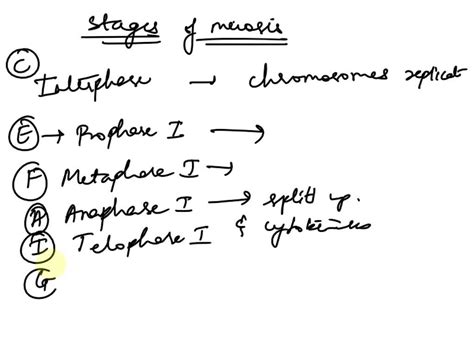 stages of meiosis
C
Interphase → chromosomes replicat
E → Prophase I →
F Metaphase I →
A Anaphase I → split up.
I Telophase I & cytokinesis
G